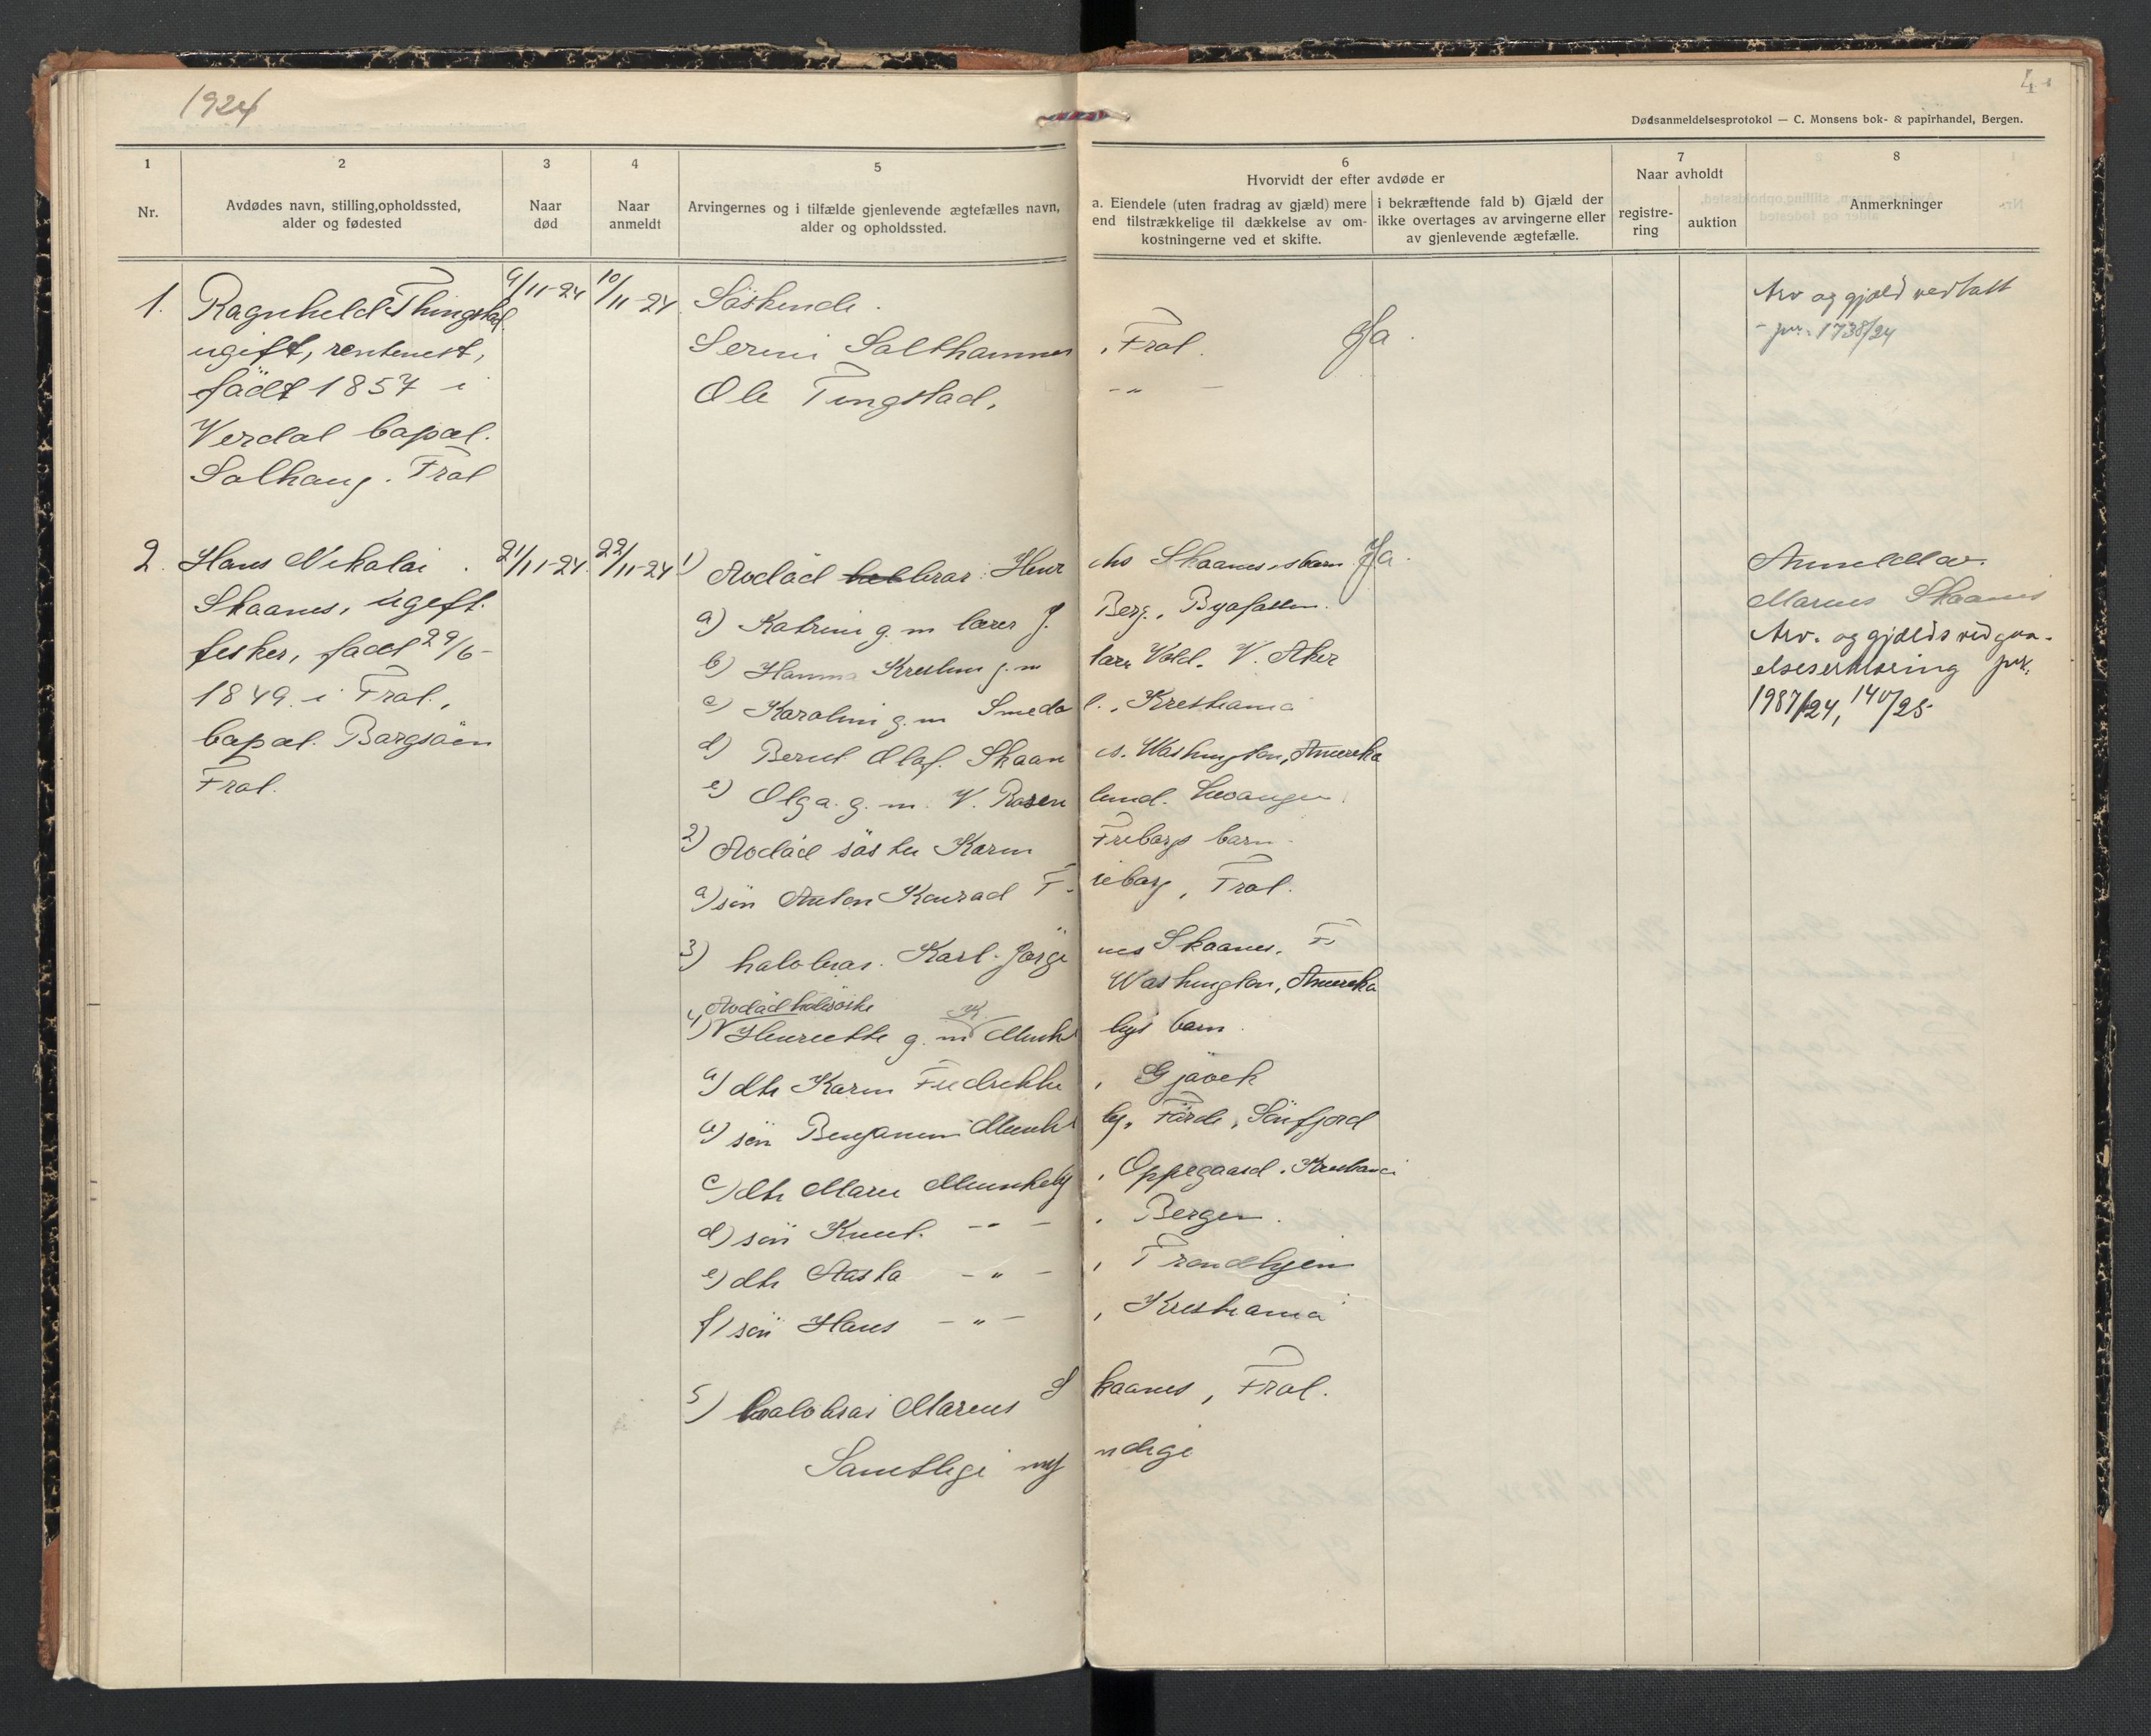 1924
4
Dødsanmeldelsesprotokol — C. Monsens bok- & papirhandel, Bergen.
1
Nr.
2
Avdødes navn, stilling, opholdssted,
alder og fødested
3
Naar
død
4
Naar
anmeldt
5
Arvingernes og i tilfælde gjenlevende ægtefælles navn,
alder og opholdssted.
6
Hvorvidt der efter avdøde er
a. Eiendele (uten fradrag av gjæld) mere
end tilstrækkelige til dækkelse av om-
kostningerne ved et skifte.
i bekræftende fald b) Gjæld der
ikke overtages av arvingerne eller
av gjenlevende ægtefælle.
7
Naar avholdt
registre-
ring
auktion
8
Anmerkninger
1.
Ragnhild Thingstad
ugift, rentenist,
födt 1857 i
Verdal bopæl.
Solhaug. Frol
9/11-24
10/11-24
Söskende.
Serini Salthammer, Frol.
Ole Tingstad, -"-
Ja.
Arv og gjæld vedtatt
- jnr. 1738/24
2.
Hans Nikolai
Skaanes, ugift.
fisker, född 29/6-
1849 i Frol.,
bopæl. Borgsåen
Frol.
21/11-24
22/11-24
1) Avdöd bror: Henr iks Skaanes's barn
Ja.
a) Katrine g. m lærer J. Berg,
b) Hanna Kristine g. m lærer Vold. V. Aker
c) Karoline g. m Smeda l., Kristiania
d) Bernt Olaf. Skaan es. Washington, Amerika
e) Olga. g. m. V. Rosen lund. Levanger.
2) Avdöd söster Karen Friborgs barn
a) sön Anton Konrad Fr iborg, Frol.
3) halvbror. Karl. Jörge nes Skaanes. Fr
Washington, Amerika
Avdöd halvsöster
4) Henriette g. m K. Munke bys barn.
a) dtr Karen Fredrikke, Gjövik
b) sön Benjamin Munke by, Förde, Sönfjord
c) dtr Marie Munkeby, Oppegaard. Kristiania
d) sön Knut. -"-, Bergen.
e) dtr Aasta -"-, Trondhjem
f) sön Hans -"-, Kristiania
5) halvbror Marius S kaanes, Frol.
Samtlige my ndige
Anmeldt av.
Marius Skaanes
Arv. og gjælds vedgaa-
elseserklæring jnr.
1987/24, 140/25